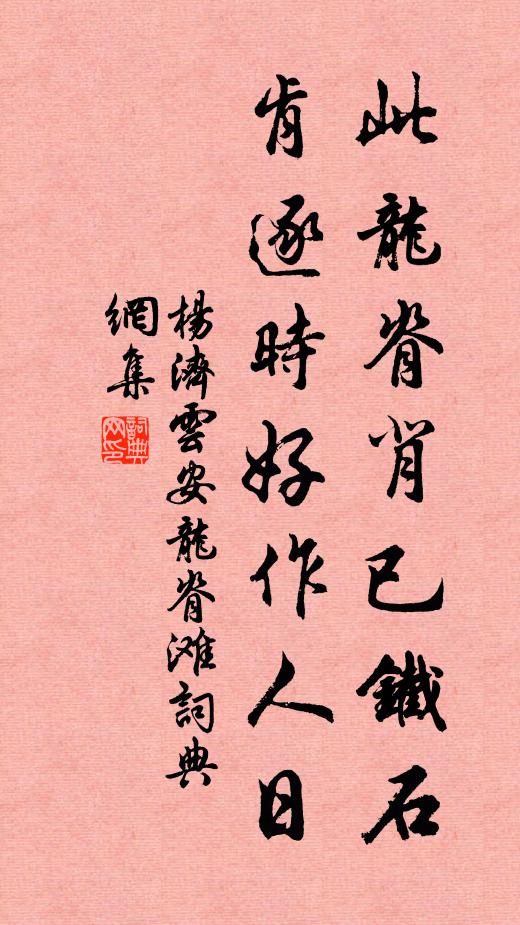 此龍脊背已鐵石
肯逐時好作人日
楊濟雲安龍脊滩詞典
網集
詞典網印